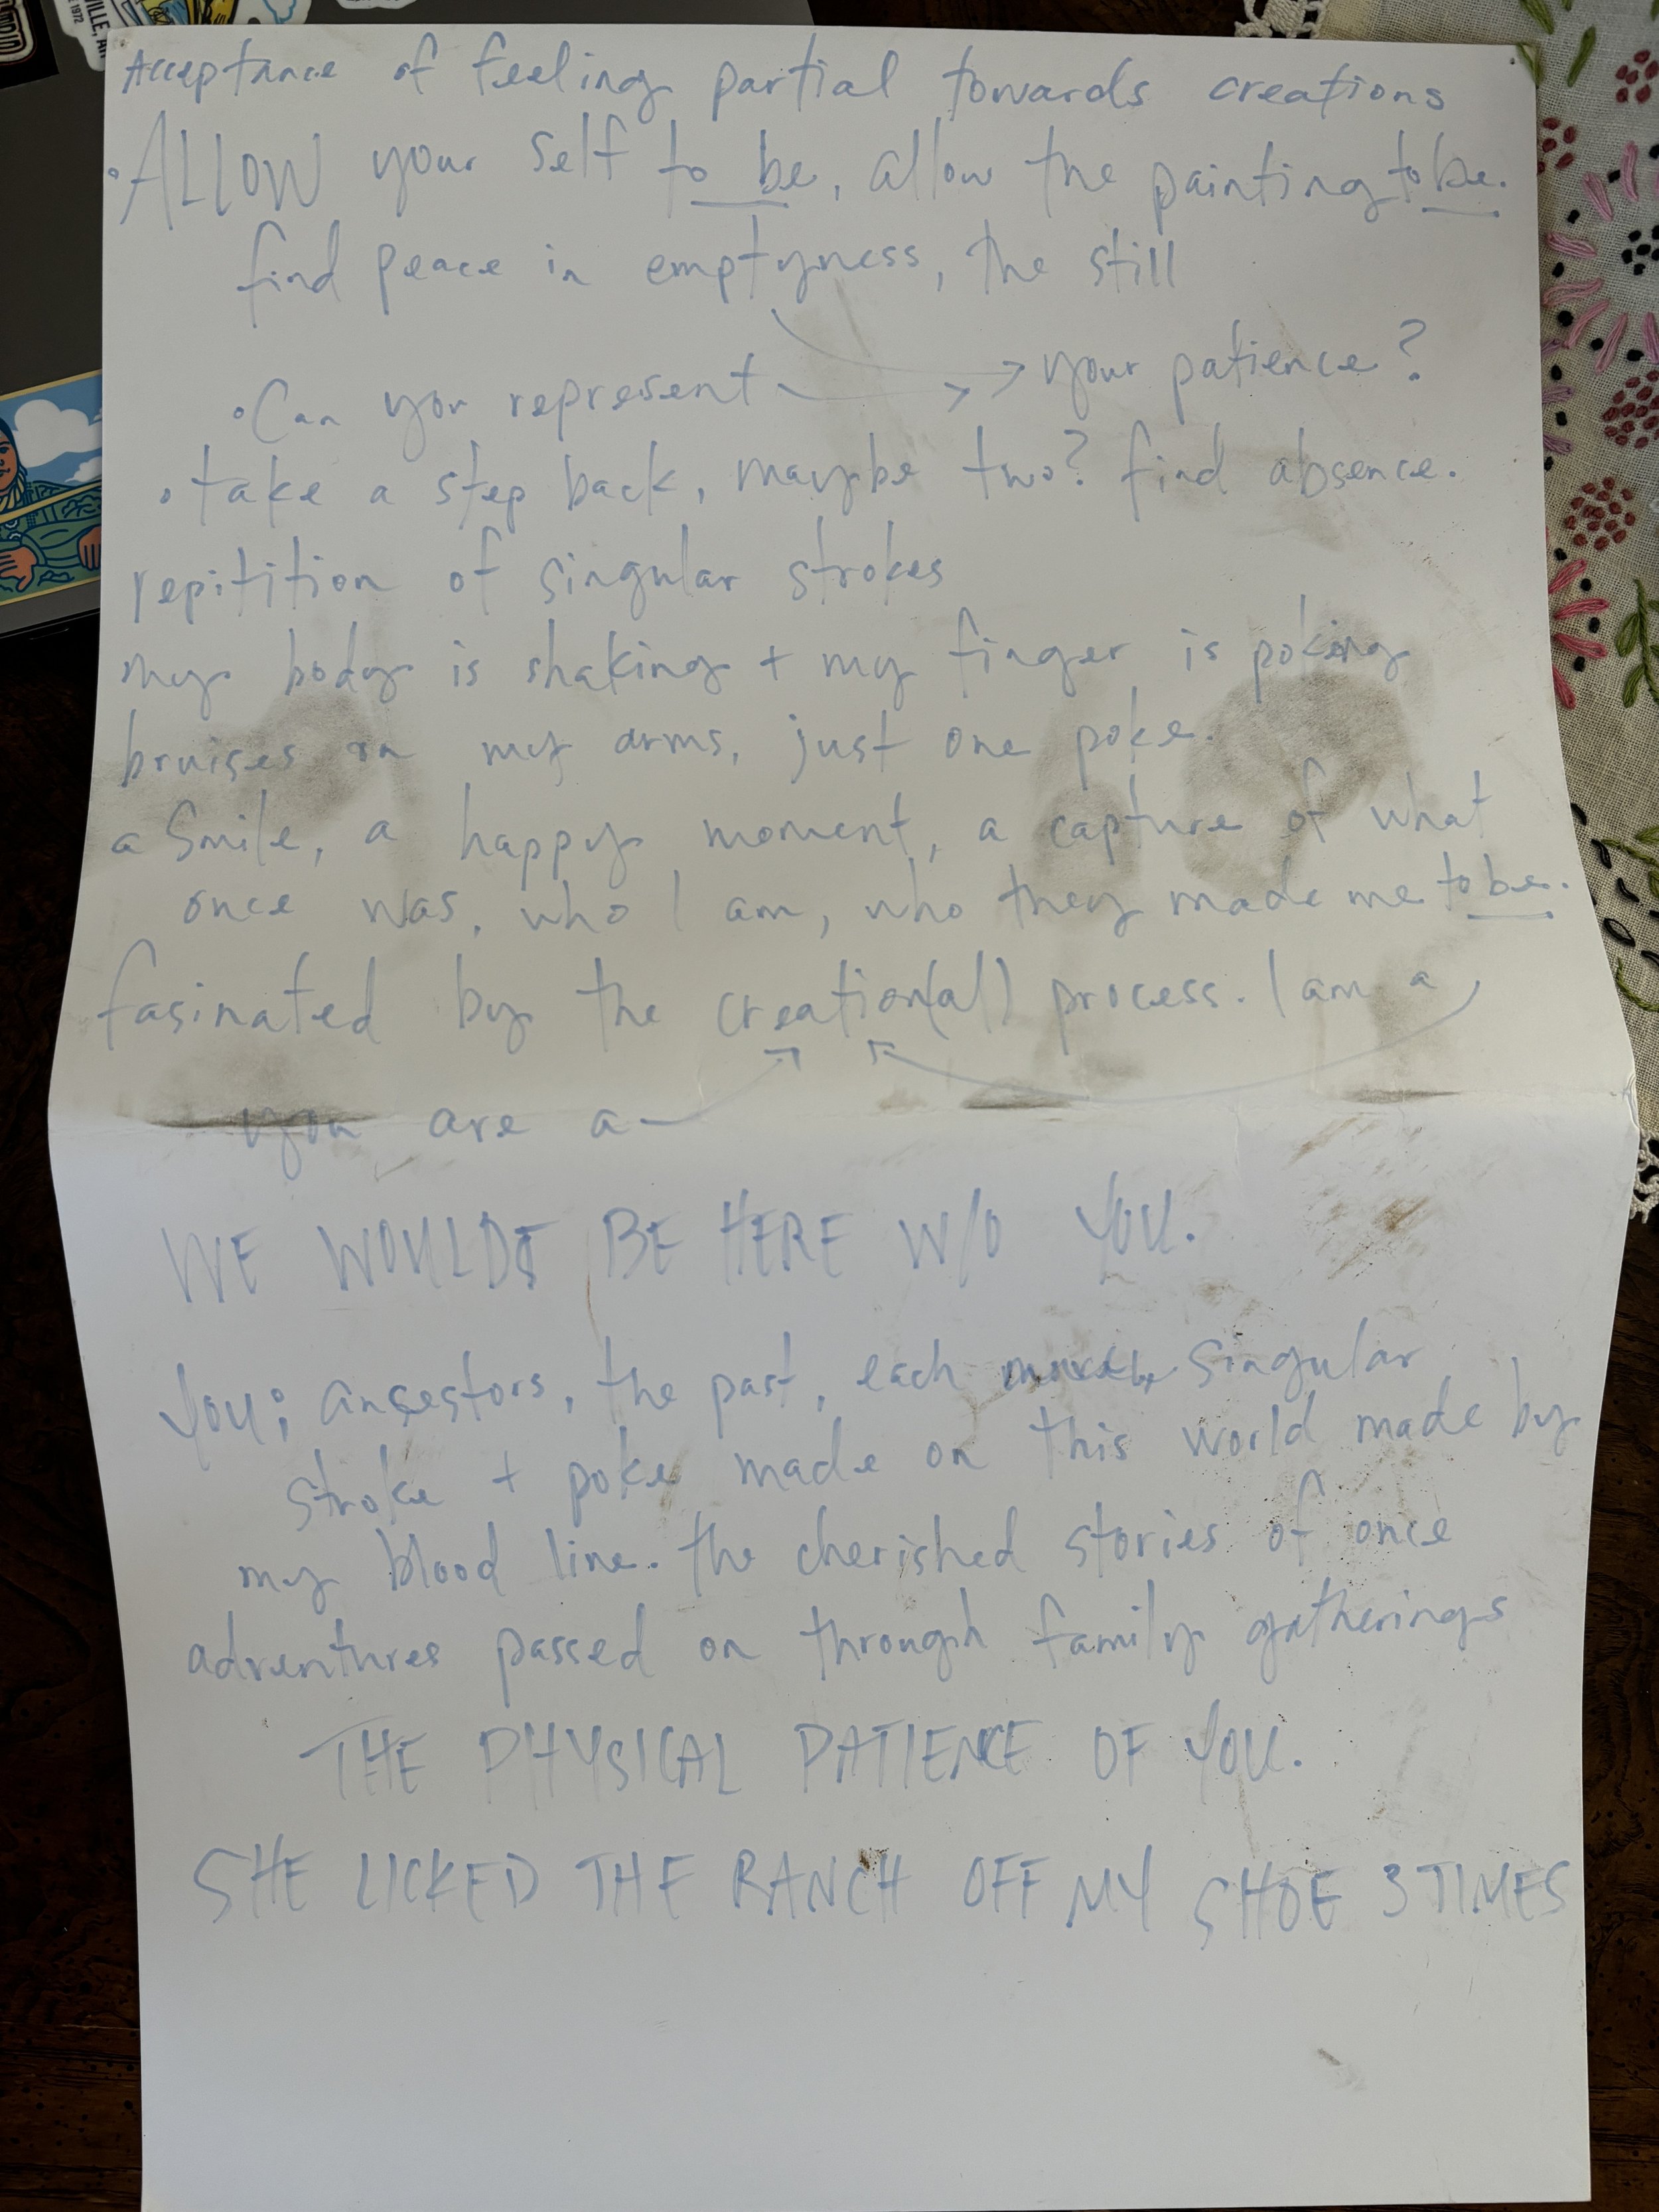 VILLE, A
1972
Acceptance of feeling partial towards creations
• ALLOW your self to be, allow the painting to be.
find peace in emptyness, the still
• Can you represent →→ your patience?
• take a step back, maybe two? find absence.
repitition of singular strokes
my body is shaking + my finger is poking
bruises in my arms, just one poke.
a smile, a happy moment, a capture of what
once was, who I am, who they made me to be.
fasinated by the creation(al) process. I am a
you are a
WE WOULDT BE HERE W/O YOU.
You; ancestors, the past, each singular
stroke + poke made on this world made by
my blood line. the cherished stories of once
adventures passed on through family gatherings
THE PHYSICAL PATIENCE OF YOU.
SHE LICKED THE RANCH OFF MY SHOE 3 TIMES